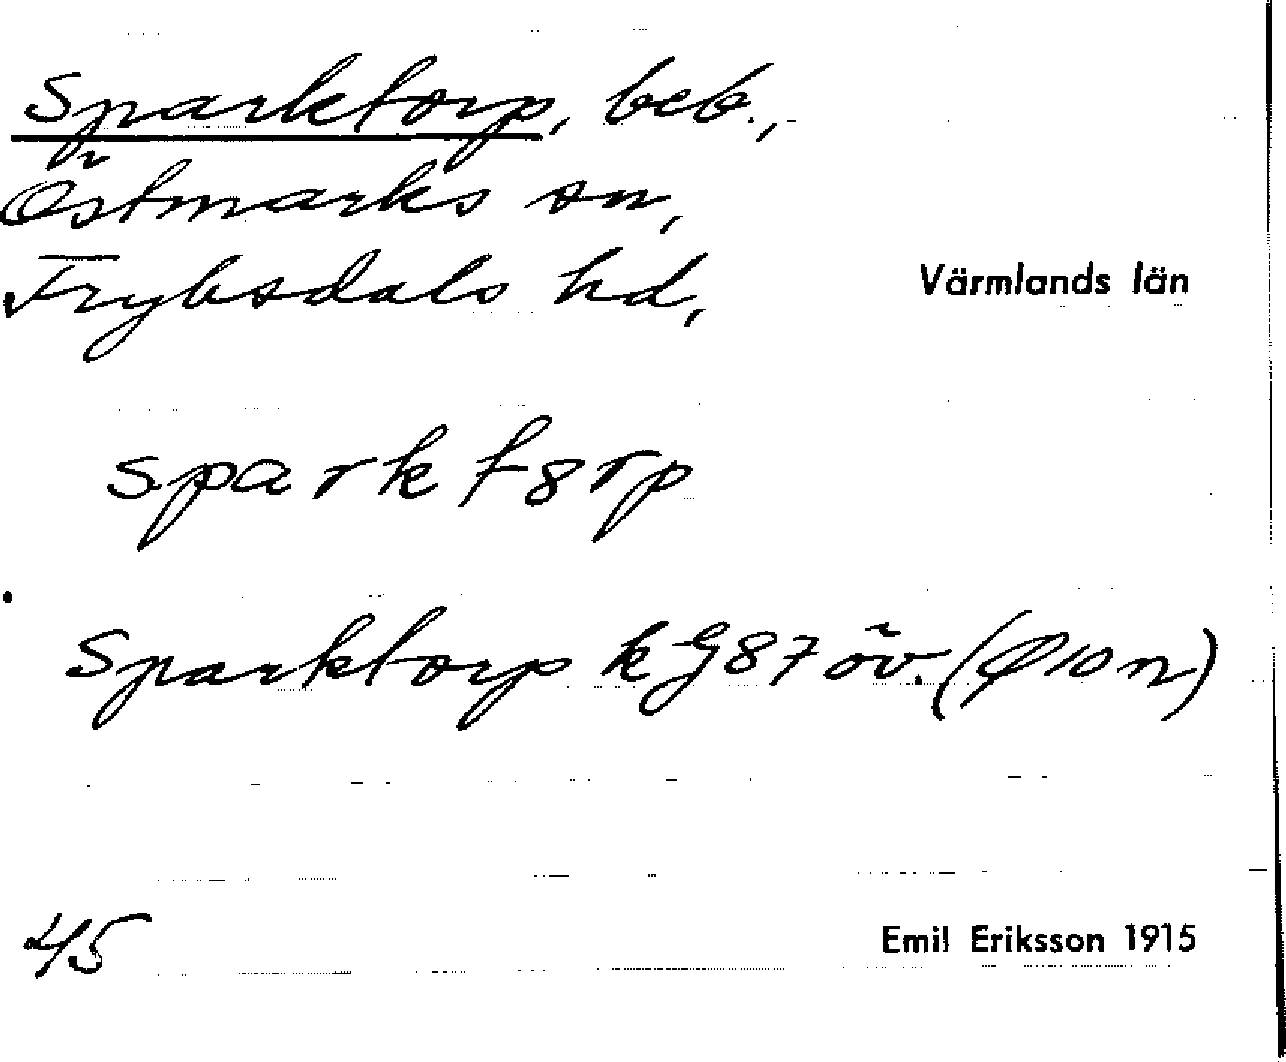 Sparktorp, beb.,
Östmarks sn,
Fryksdals hd,
Värmlands län
sparkt8rp
Sparktorp kG87 öv. (Ø10n)
45
Emil Eriksson 1915